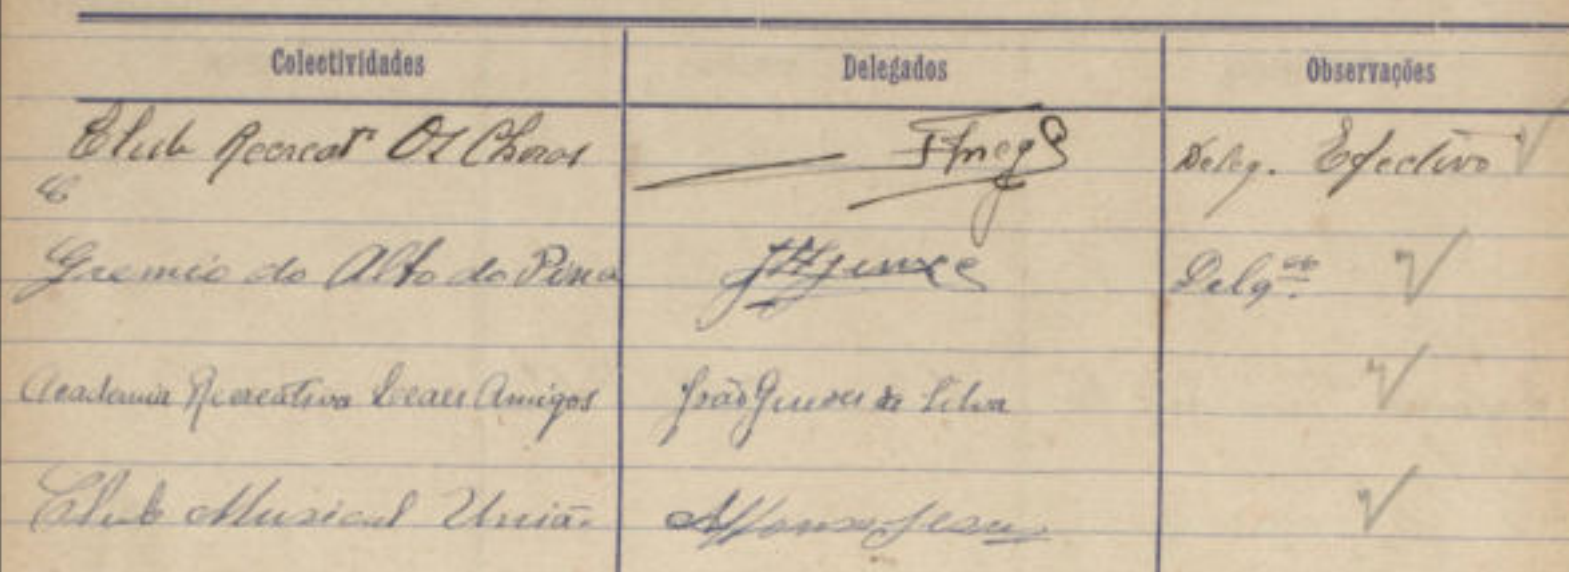 Colectividades Delegados Observações
Club Recreat° Os Choras Deleg. Efectivo √
Gremio do Alto do Pina Delg. √
Academia Recreativa Leaes Amigos João Gomes da Silva √
Club Musical União Affonso Jesus √